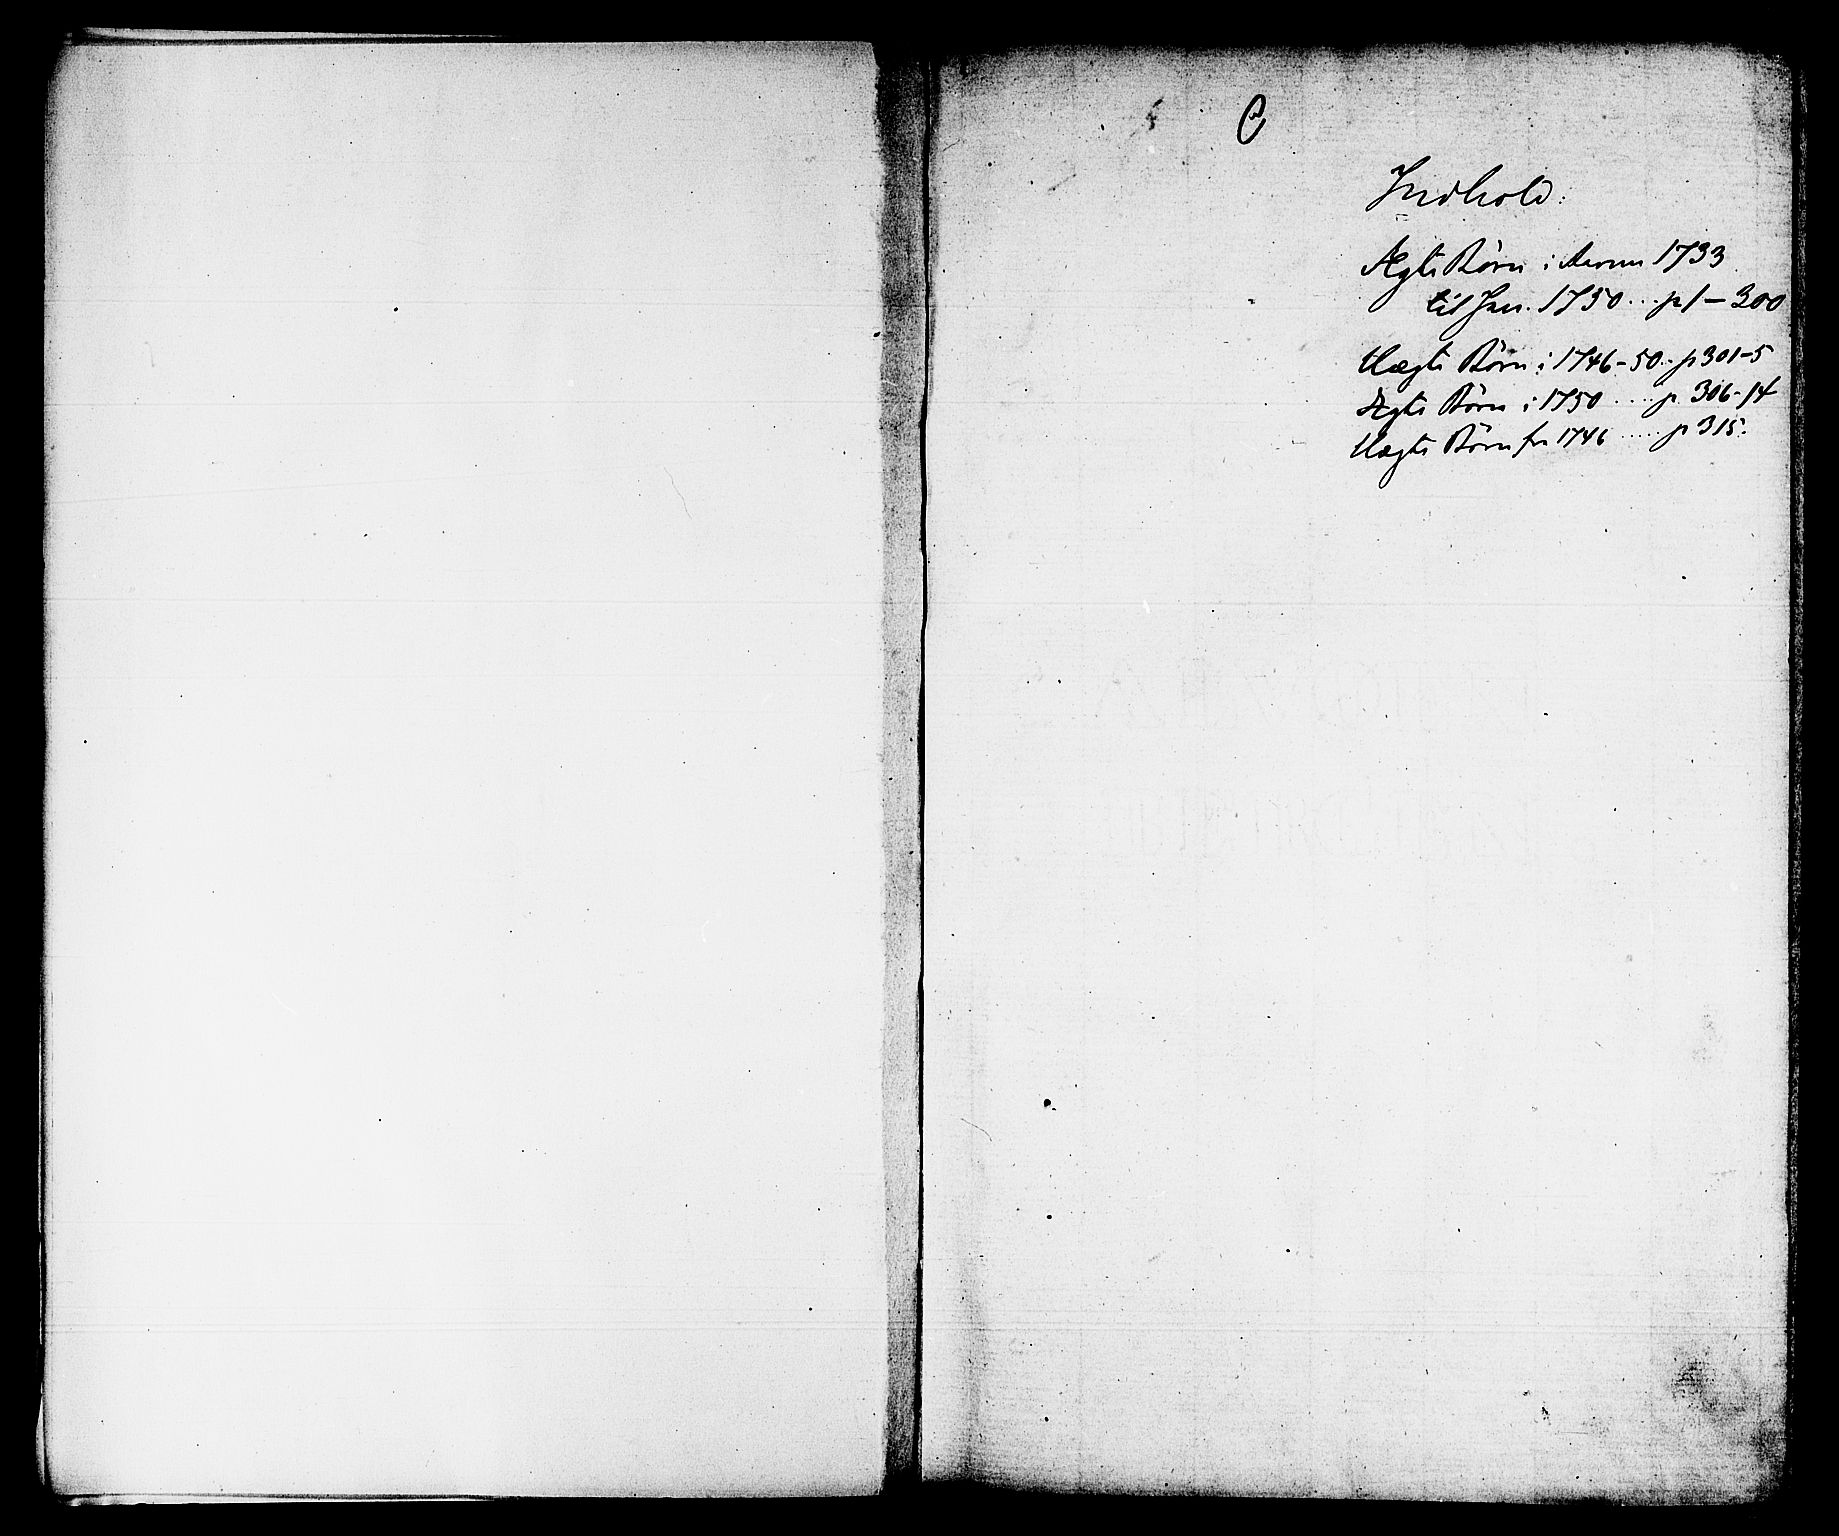 C
Indhold:
Ægte Børn i Aarene 1733
til Jan. 1750 ... p 1 – 300
Uægte Børn i 1746–50.. p 301–5
Ægte Børn i 1750 ..... p. 306–14
Uægte Børn fra 1746 ..... p 315.